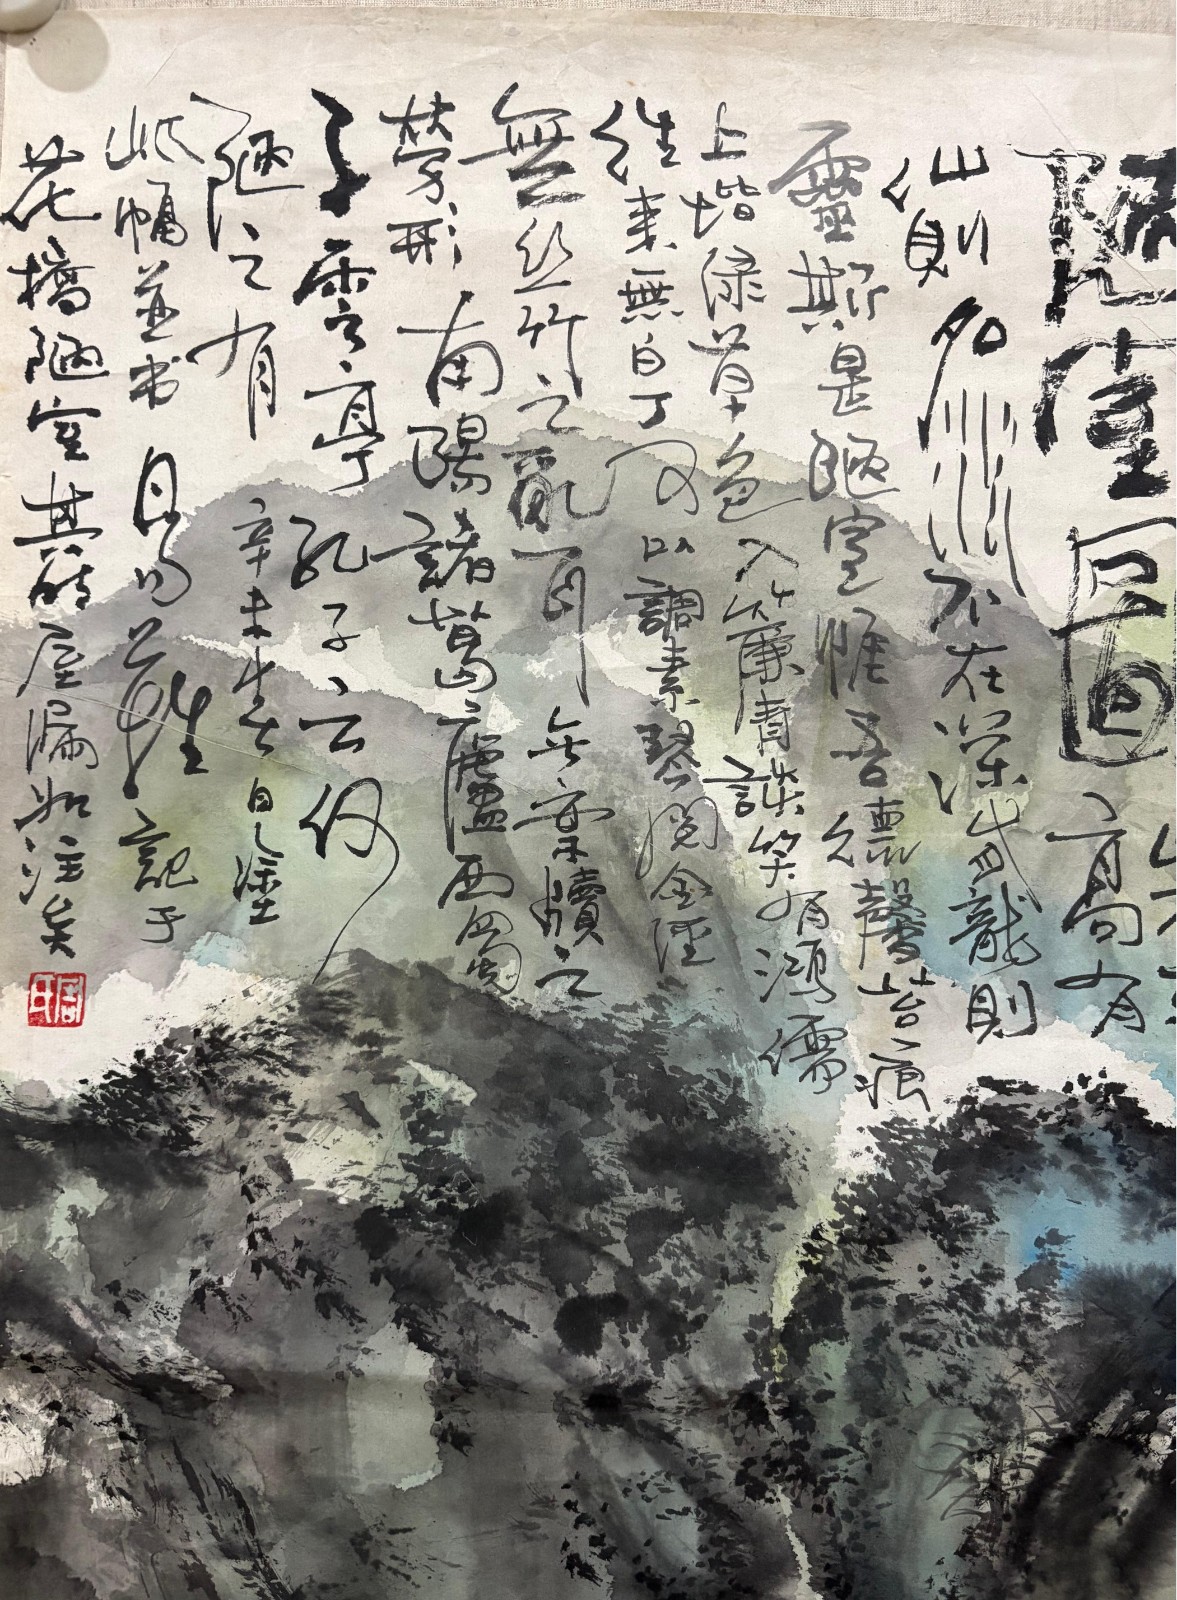 陋室圖
山不
高有
仙則名水不在深有龍則
靈斯是陋室惟吾德馨苔痕
上堦緑草色入簾青談笑有鴻儒
往来無白丁可以調素琴閲金經
無丝竹之亂耳無案牘之
勞形南陽諸葛廬西蜀
子雲亭孔子云何
陋之有
辛未 自塗
此幅並书 記于
花橋陋室其时屋漏如注矣